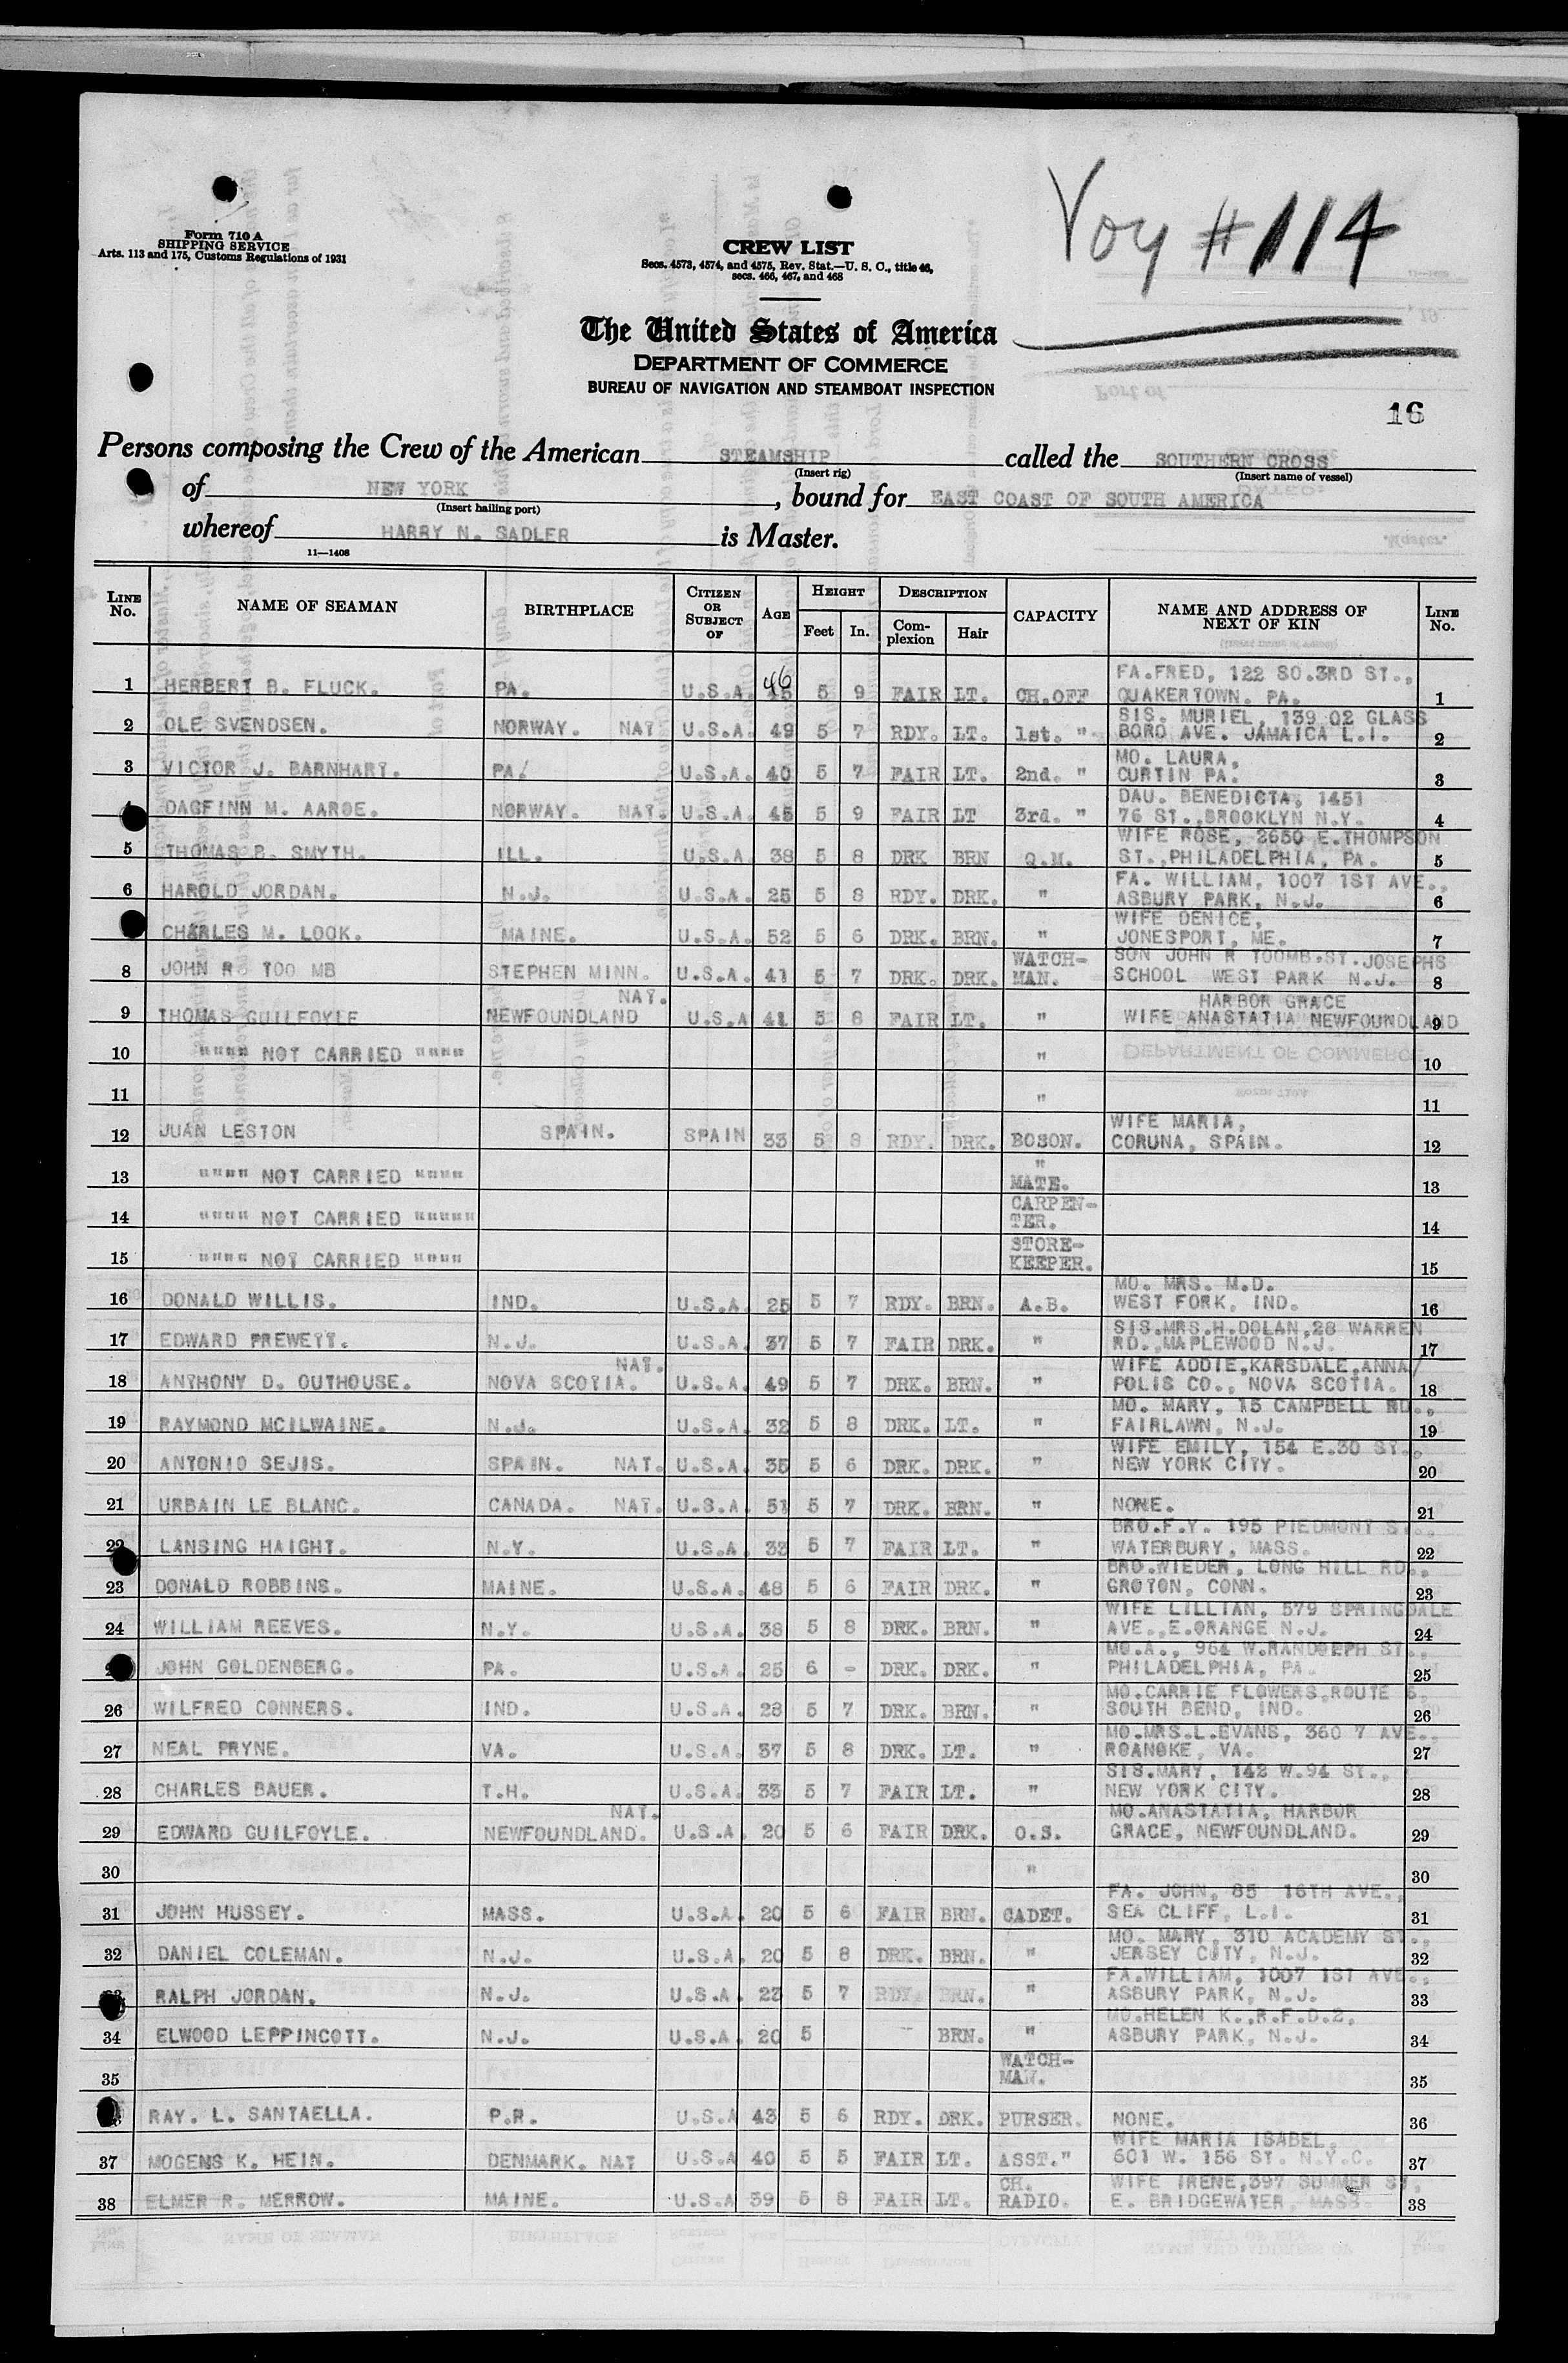 Voy # 114
Form 710 A
SHIPPING SERVICE
Arts. 113 and 175, Customs Regulations of 1931
CREW LIST
Secs. 4573, 4574, and 4575, Rev. Stat.—U. S. C., title 46,
secs. 466, 467, and 468
The United States of America
DEPARTMENT OF COMMERCE
BUREAU OF NAVIGATION AND STEAMBOAT INSPECTION
16
Persons composing the Crew of the American STEAMSHIP called the SOUTHERN CROSS
(Insert rig) (Insert name of vessel)
of NEW YORK, bound for EAST COAST OF SOUTH AMERICA
(Insert hailing port)
whereof HARRY N. SADLER is Master.
11—1408
LINE No. NAME OF SEAMAN BIRTHPLACE CITIZEN OR SUBJECT OF AGE HEIGHT Feet In. DESCRIPTION Complexion Hair CAPACITY NAME AND ADDRESS OF NEXT OF KIN LINE No.
FA.FRED, 122 SO.3RD ST.,
1 HERBERT B. FLUCK. PA. U.S.A. 46 5 9 FAIR LT. CH.OFF QUAKERTOWN. PA. 1
SIS. MURIEL, 139 02 GLASS
2 OLE SVENDSEN. NORWAY. NAT U.S.A. 49 5 7 RDY. LT. 1st. " BORO AVE. JAMAICA L.I. 2
MO. LAURA,
3 VICTOR J. BARNHART. PA. U.S.A. 40 5 7 FAIR LT. 2nd. " CURTIN PA. 3
DAU. BENEDICTA, 1451
DAGFINN M. AAROE. NORWAY. NAT. U.S.A. 45 5 9 FAIR LT 3rd. " 76 ST.,BROOKLYN N.Y. 4
WIFE ROSE, 2650 E.THOMPSON
5 THOMAS B. SMYTH. ILL. U.S.A. 38 5 8 DRK BRN Q.M. ST.,PHILADELPHIA, PA. 5
FA. WILLIAM, 1007 1ST AVE.,
6 HAROLD JORDAN. N.J. U.S.A. 25 5 8 RDY. DRK. " ASBURY PARK, N.J. 6
WIFE DENICE,
CHARLES M. LOOK. MAINE. U.S.A. 52 5 6 DRK. BRN. " JONESPORT, ME. 7
WATCH- SON JOHN R TOOMB.ST.JOSEPHS
8 JOHN R. TOO MB STEPHEN MINN. U.S.A. 41 5 7 DRK. DRK. MAN. SCHOOL WEST PARK N.J. 8
NAT. HARBOR GRACE
9 THOMAS GUILFOYLE NEWFOUNDLAND U.S.A 41 5 8 FAIR LT. " WIFE ANASTATIA NEWFOUNDLAND 9
10 """" NOT CARRIED """" " 10
11 " 11
WIFE MARIA,
12 JUAN LESTON SPAIN. SPAIN 33 5 8 RDY. DRK. BOSON. CORUNA, SPAIN. 12
"
13 """" NOT CARRIED """" MATE. 13
CARPEN-
14 """" NOT CARRIED """"" TER. 14
STORE-
15 """" NOT CARRIED """" KEEPER. 15
MO. MRS. M.D.
16 DONALD WILLIS. IND. U.S.A. 25 5 7 RDY. BRN. A.B. WEST FORK, IND. 16
SIS.MRS.H.DOLAN,28 WARREN
17 EDWARD PREWETT. N.J. U.S.A. 37 5 7 FAIR DRK. " RD.,MAPLEWOOD N.J. 17
NAT. WIFE ADDIE,KARSDALE,ANNA/
18 ANTHONY D. OUTHOUSE. NOVA SCOTIA. U.S.A. 49 5 7 DRK. BRN. " POLIS CO., NOVA SCOTIA. 18
MO. MARY, 15 CAMPBELL RD.,
19 RAYMOND MCILWAINE. N.J. U.S.A. 32 5 8 DRK. LT. " FAIRLAWN, N.J. 19
WIFE EMILY, 154 E.30 ST.,
20 ANTONIO SEJIS. SPAIN. NAT. U.S.A. 35 5 6 DRK. DRK. " NEW YORK CITY. 20
21 URBAIN LE BLANC. CANADA. NAT. U.S.A. 51 5 7 DRK. BRN. " NONE. 21
BRO.F.Y. 195 PIEDMONT ST.,
22 LANSING HAIGHT. N.Y. U.S.A. 33 5 7 FAIR LT. " WATERBURY, MASS. 22
BRO.WIEDER, LONG HILL RD.,
23 DONALD ROBBINS. MAINE. U.S.A. 48 5 6 FAIR DRK. " GROTON, CONN. 23
WIFE LILLIAN, 579 SPRINGDALE
24 WILLIAM REEVES. N.Y. U.S.A. 38 5 8 DRK. BRN. " AVE.,E.ORANGE N.J. 24
MO.A., 964 W.RANDOLPH ST.,
JOHN GOLDENBERG. PA. U.S.A. 25 6 - DRK. DRK. " PHILADELPHIA, PA. 25
MO.CARRIE FLOWERS,ROUTE
26 WILFRED CONNERS. IND. U.S.A. 28 5 7 DRK. BRN. " SOUTH BEND, IND. 26
MO.MRS.L.EVANS, 360 7 AVE.,
27 NEAL PRYNE. VA. U.S.A. 37 5 8 DRK. LT. " ROANOKE, VA. 27
SIS.MARY, 142 W.94 ST.,
28 CHARLES BAUER. T.H. U.S.A. 33 5 7 FAIR LT. " NEW YORK CITY. 28
NAT. MO.ANASTATIA, HARBOR
29 EDWARD GUILFOYLE. NEWFOUNDLAND. U.S.A. 20 5 6 FAIR DRK. O.S. GRACE, NEWFOUNDLAND. 29
30 " 30
FA. JOHN, 85 16TH AVE.,
31 JOHN HUSSEY. MASS. U.S.A. 20 5 6 FAIR BRN. CADET. SEA CLIFF, L.I. 31
MO. MARY, 310 ACADEMY ST.,
32 DANIEL COLEMAN. N.J. U.S.A. 20 5 8 DRK. BRN. " JERSEY CITY, N.J. 32
FA.WILLIAM, 1007 1ST AVE.,
RALPH JORDAN. N.J. U.S.A. 23 5 7 RDY. BRN. " ASBURY PARK, N.J. 33
MO.HELEN K.,R.F.D.2,
34 ELWOOD LEPPINCOTT. N.J. U.S.A. 20 5 BRN. " ASBURY PARK, N.J. 34
WATCH-
35 MAN. 35
RAY. L. SANTAELLA. P.R. U.S.A 43 5 6 RDY. DRK. PURSER. NONE. 36
WIFE MARIA ISABEL,
37 MOGENS K. HEIN. DENMARK. NAT U.S.A 40 5 5 FAIR LT. ASST." 601 W. 156 ST. N.Y.C. 37
CH. WIFE IRENE,397 SUMMER ST,
38 ELMER R. MERROW. MAINE. U.S.A 39 5 8 FAIR LT. RADIO. E. BRIDGEWATER, MASS. 38